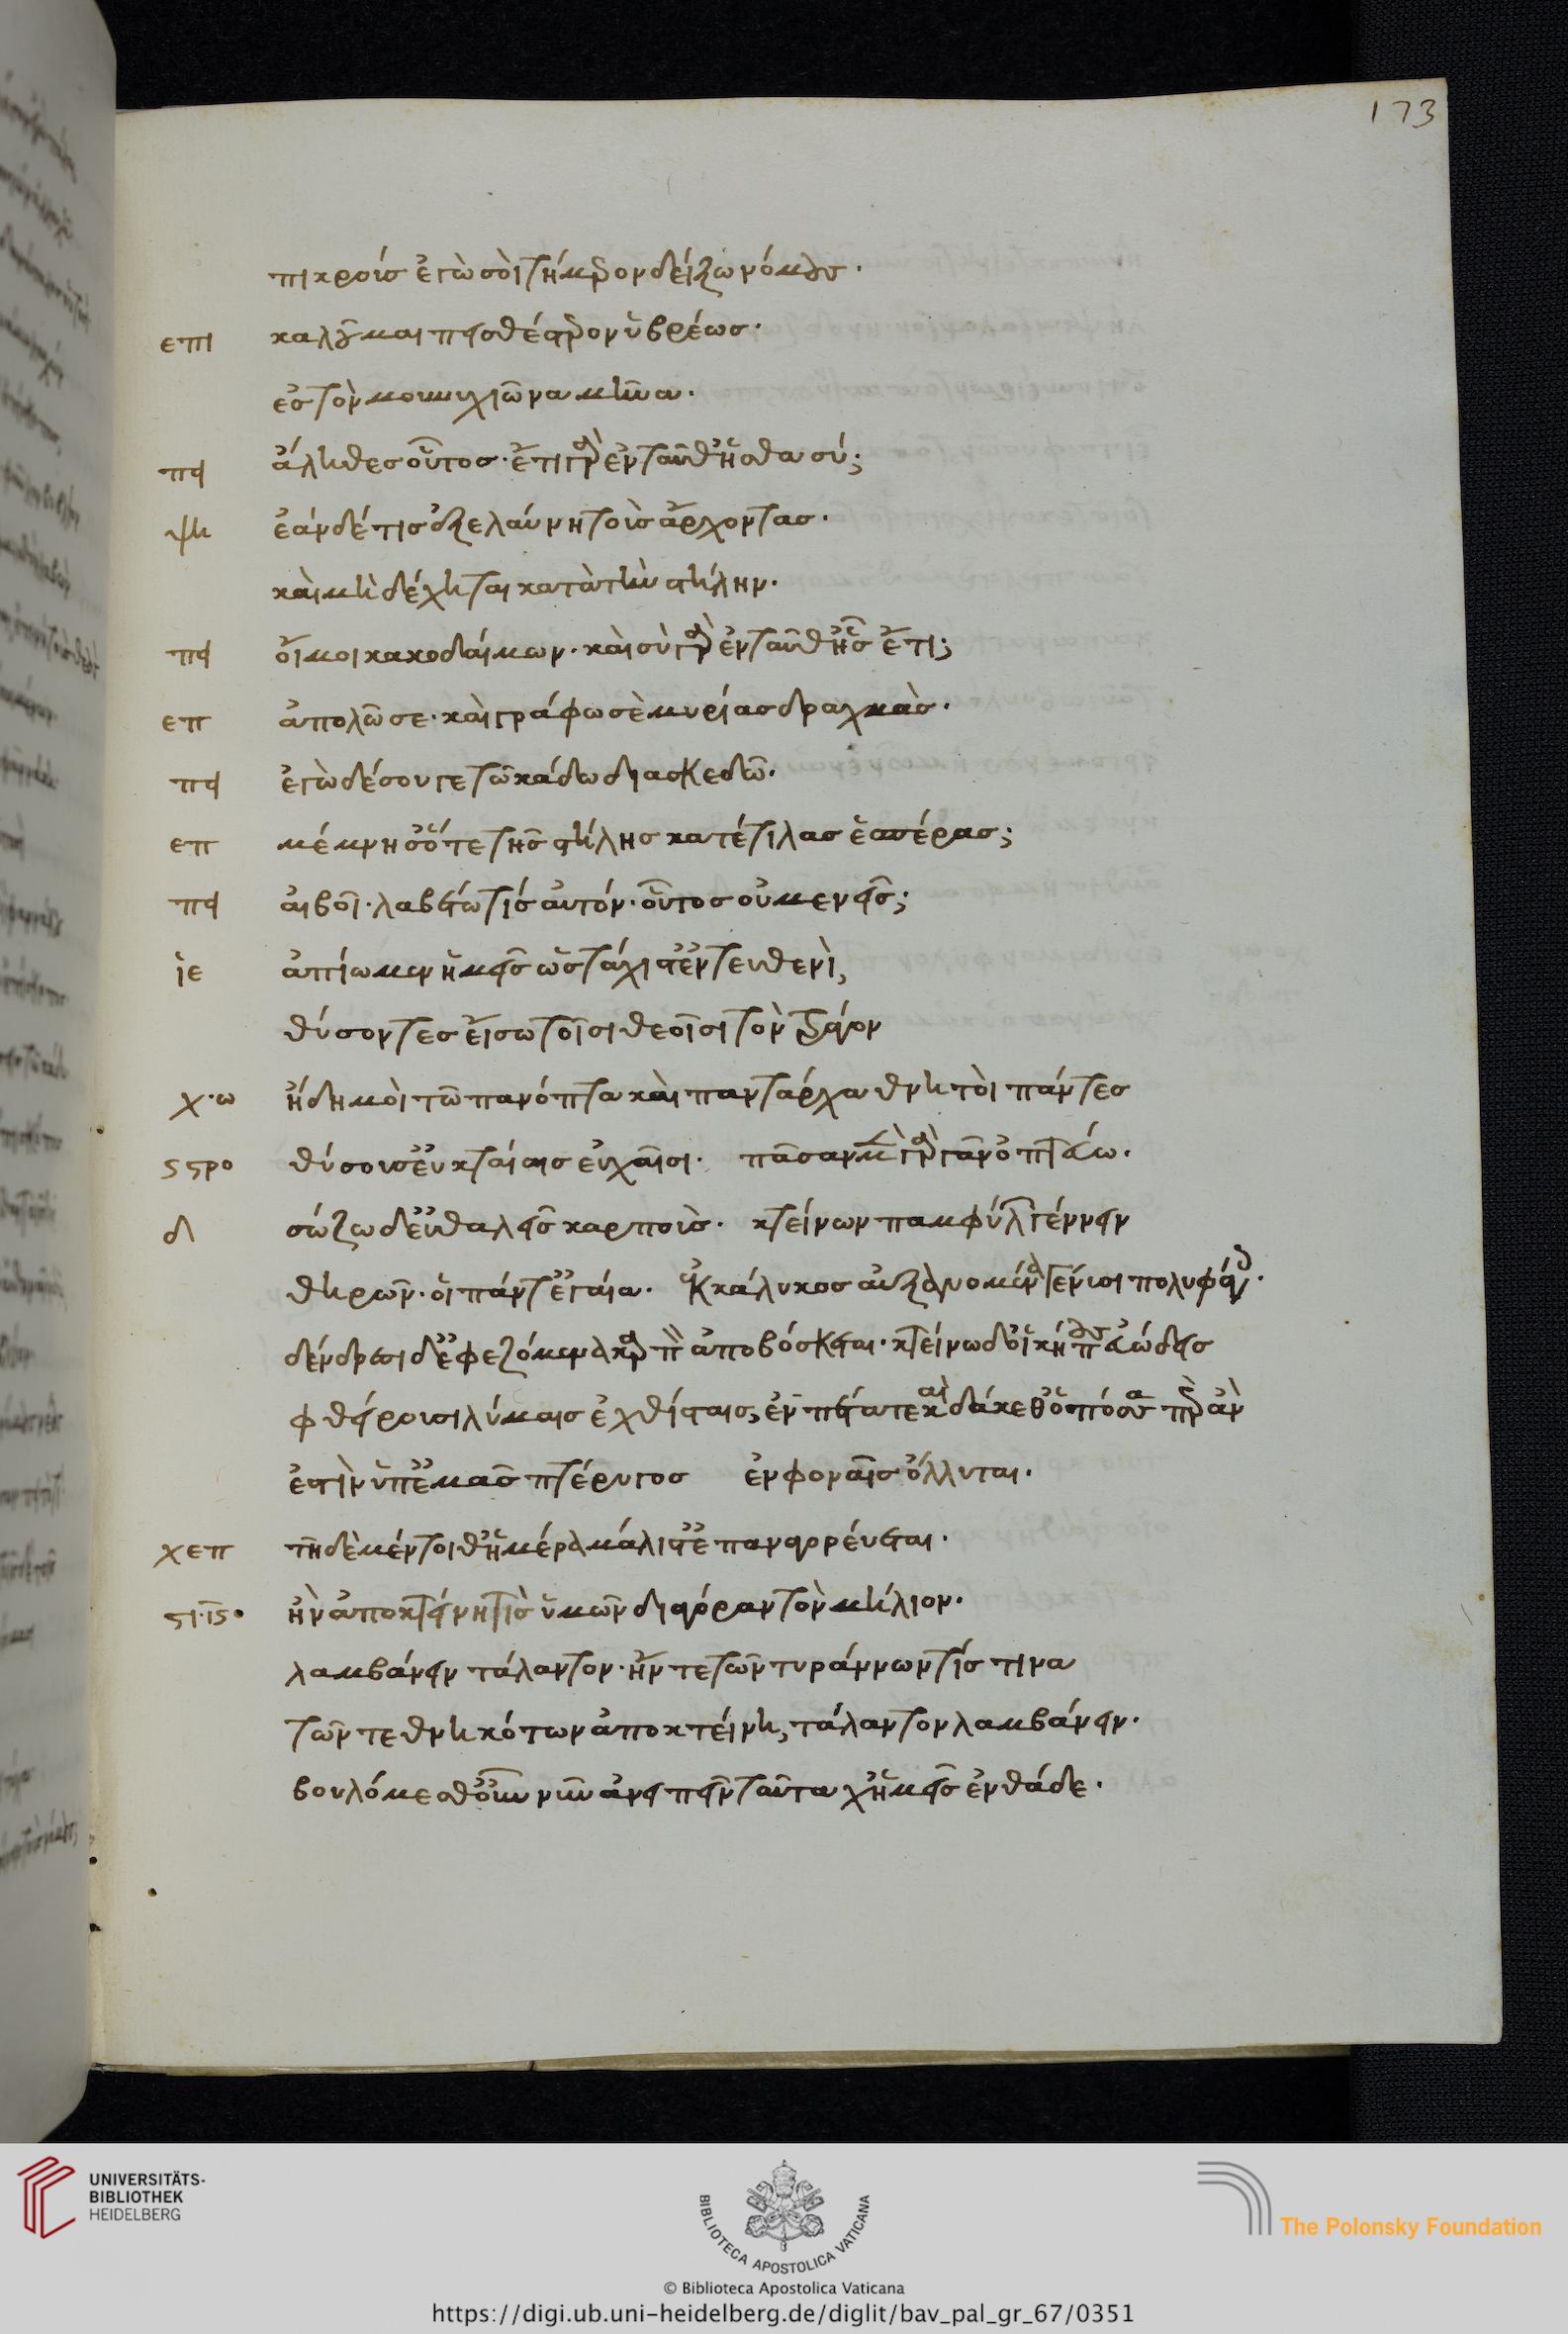 173
πικροὺς ἐγώ σοι τήμερον δείξω νόμους.
επι καλοῦμαι πεισθέταιρον ὕβρεως.
ἐς τὸν μουνυχιῶνα μῆνα.
πει ἄληθες οὗτος. ἔτι γὰρ ἐνταῦθ' ἦσθα σύ;
ψη ἐὰν δέ τις ἐξελαύνῃ τοὺς ἄρχοντας.
καὶ μὴ δέχηται κατὰ τὴν στήλην.
πει οἴμοι κακοδαίμων. καὶ σὺ γὰρ ἐνταῦθ' ἦσ ἔτι;
επ ἀπολῶ σε. καὶ γράφω σὲ μυρίας δραχμὰς.
πει ἐγὼ δέ σου γε τὼ κάδω διασκεδῶ.
επ μέμνησ' ὅτε τῆς στήλης κατετίλας ἑσπέρας;
πει αἰβοῖ. λαβέτω τίς αὐτόν. οὗτος οὐ μενεῖς;
ἱε ἀπίωμεν ἡμεῖς ὡς τάχιστ' ἐντευθενὶ,
θύσοντες εἴσω τοῖσι θεοῖσι τὸν τράγον
χ.ω ἤδη μοὶ τῶ παντόπτα καὶ παντάρχα θνητοὶ πάντες
θύσουσ' εὐκταίαις εὐχαῖσι. πᾶσαν μὲν γὰρ γᾶν ὀπτεύω.
σώζω δ' εὐθαλεῖς καρποὺς. κτείνων παμφύλων γένναν
θηρῶν. οἳ πάντ' ἐν γαία. ἐκ κάλυκος αὐξανόμενα γένυσι πολυφάγοις.
δένδρεσι δ' ἐφεζόμενα καρπὸν ἀποβόσκεται. κτείνω δ' οἳ κήπους εὐώδεις
φθείρουσι λύμαις ἐχθίσταις, ἑρπετά τε καὶ δάκεθ' ὅσπερ
ἐστὶν ὑπ' ἐμᾶς πτέρυγος ἐν φοναῖς ὄλλυται.
χεπ τῇδε μέντοι θἠμέρᾳ μάλιστ' ἐπαναγορεύεται.
ἢν ἀποκτείνῃ τὶς ὑμῶν διαγόραν τὸν μήλιον.
λαμβάνειν τάλαντον. ἤν τε τῶν τυράννων τίς τινα
τῶν τεθνηκότων ἀποκτείνῃ, τάλαντον λαμβάνειν.
βουλόμεσθ' οὖν νῦν ἀνειπεῖν ταῦτα χἠμεῖς ἐνθάδε.
UNIVERSITÄTS-
BIBLIOTHEK
HEIDELBERG
BIBLIOTECA APOSTOLICA VATICANA
The Polonsky Foundation
© Biblioteca Apostolica Vaticana
https://digi.ub.uni-heidelberg.de/diglit/bav_pal_gr_67/0351